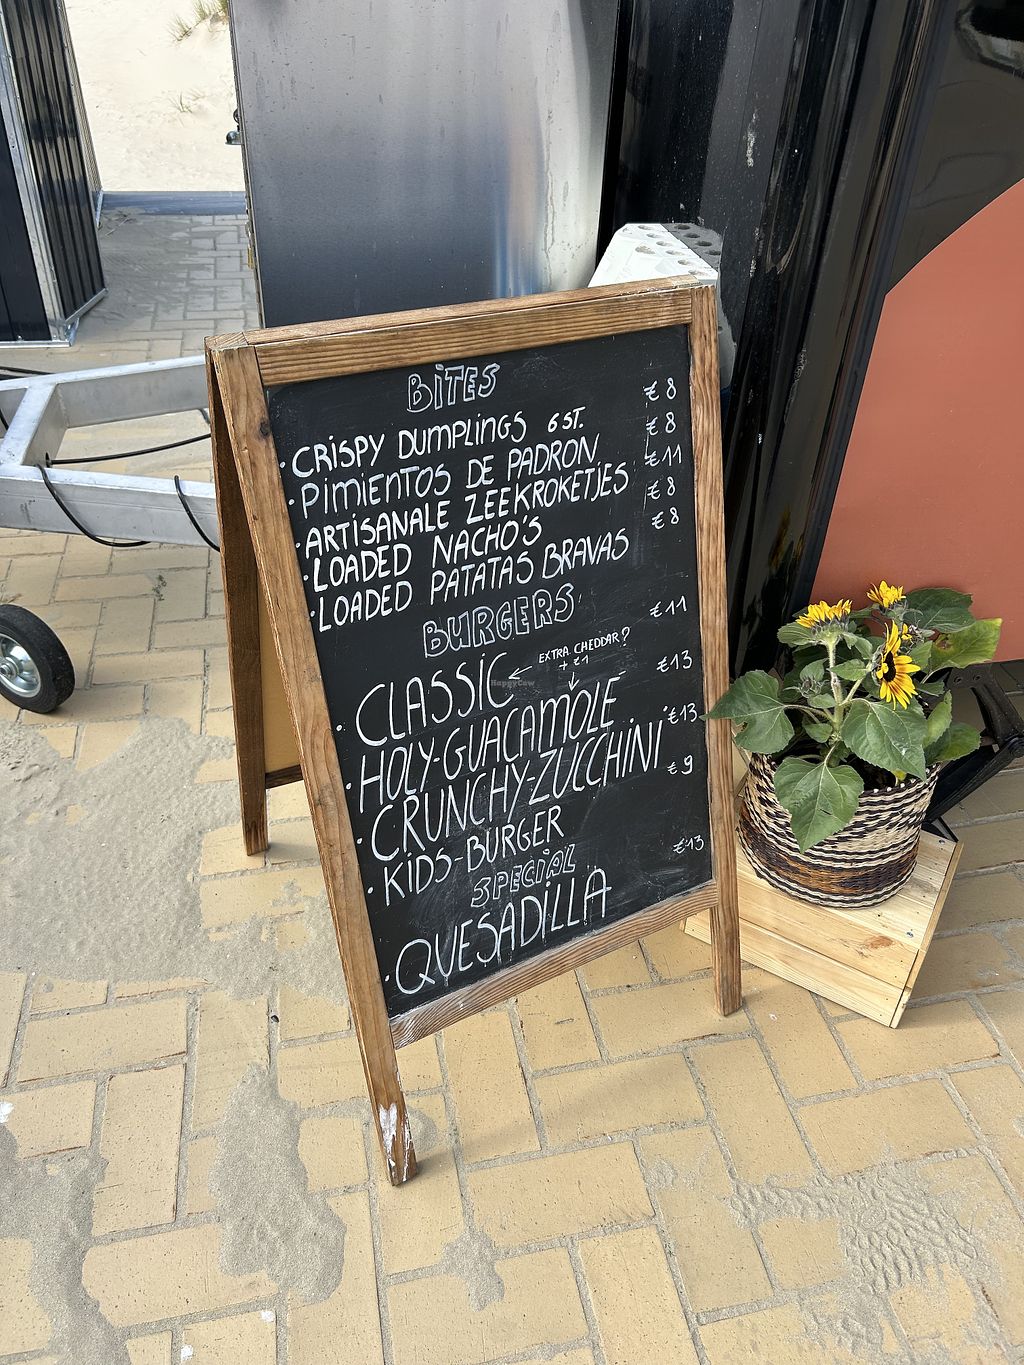 BITES
· CRISPY DUMPLINGS 6 ST. € 8
· PIMIENTOS DE PADRON € 8
· ARTISANALE ZEEKROKETJES €11
· LOADED NACHO'S € 8
· LOADED PATATAS BRAVAS € 8
BURGERS
· CLASSIC €11
EXTRA CHEDDAR?
+ €1
· HOLY-GUACAMOLE €13
· CRUNCHY-ZUCCHINI €13
· KIDS-BURGER €9
SPECIAL
· QUESADILLA €13
HappyCow